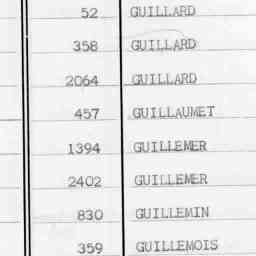 52 GUILLARD
358 GUILLARD
2064 GUILLARD
457 GUILLAUMET
1394 GUILLEMER
2402 GUILLEMER
830 GUILLEMIN
359 GUILLEMOIS